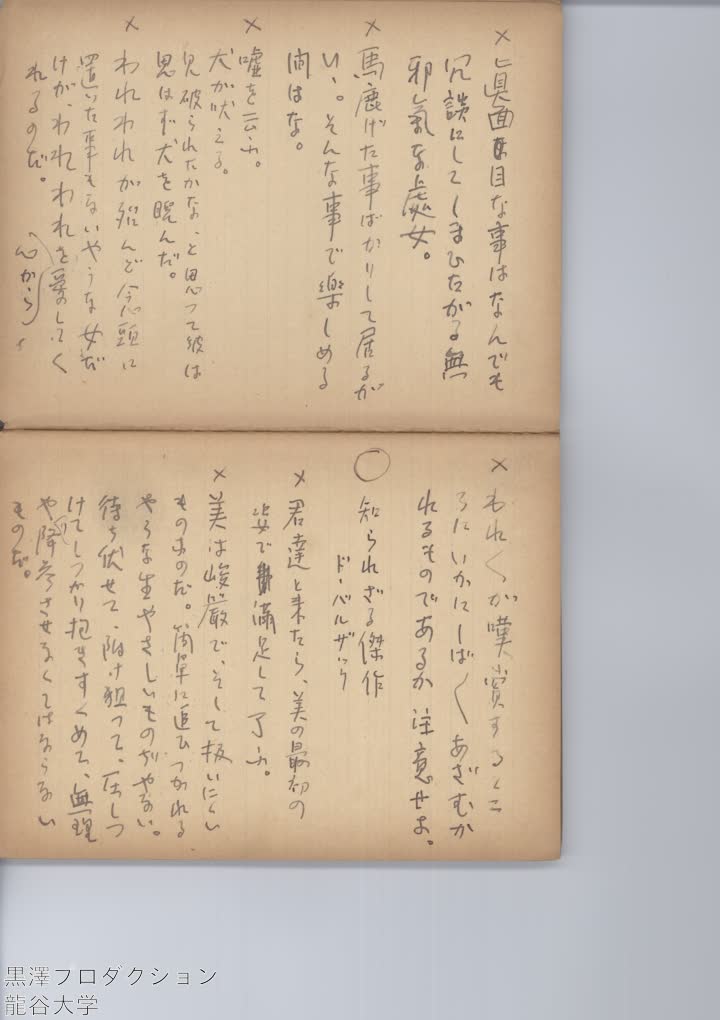 × 眞面目な事はなんでも
冗談にしてしまひたがる無
邪氣な處女。
× 馬鹿げた事ばかりして居るが
いゝ。そんな事で樂しめる
間はな。
× 嘘を云ふ。
犬が吠える。
見破られたかな、と思つて彼は
思はず犬を睨んだ。
× われわれが殆んど念頭に
置いた事もないやうな女だ
けが、われわれを愛してく
れるのだ。
(心から)
× われ〱が嘆賞するところ
にいかにしば〱あざむか
れるものであるか 注意せよ。
○ 知られざる傑作
ド・バルザック
× 君達と来たら、美の最初の
姿で満足して了ふ。
× 美は峻厳で、そして扱いにくい
ものなのだ。簡單に追ひつかれる
やうな生やさしいものぢやない。
待ち伏せて、附け狙つて、圧しつ
けてしつかり抱きすくめて、無理
や(り)降参させなくてはならない
ものだ。
黒澤プロダクション
龍谷大学